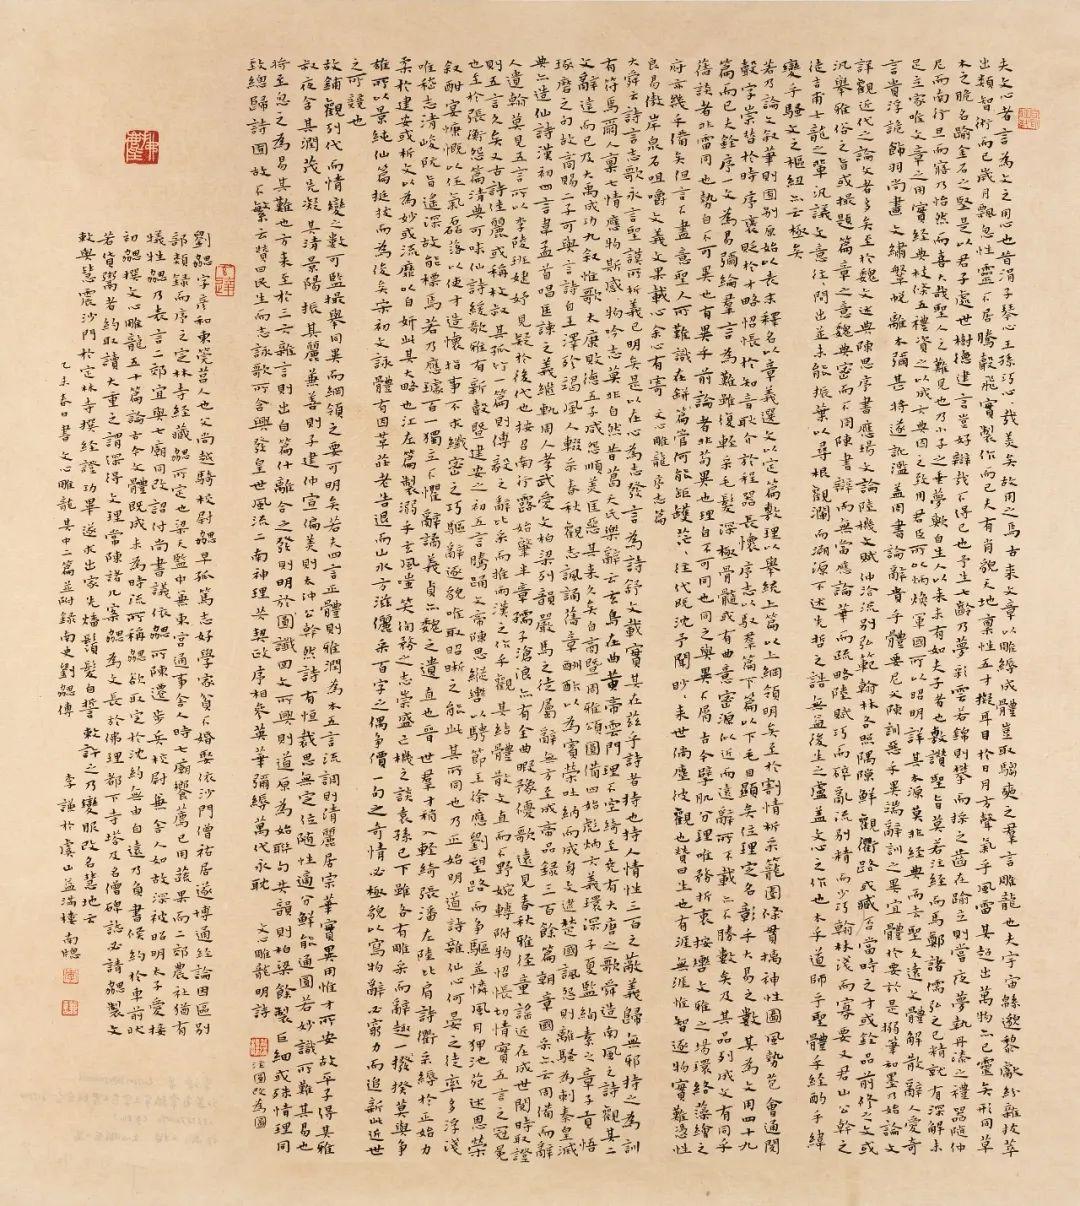 夫文心者言為文之用心也昔涓子琴心王孫巧心哉美矣故用之焉古來文章以雕縟成體豈取騶奭之羣言雕龍也夫宇宙緜邈黎獻紛雜拔萃
出類智術而已歲月飄忽性靈不居騰聲飛實製作而已夫有肖貌天地稟性五才擬耳目於日月方聲氣乎風雷其超出萬物亦已靈矣形同草
木之脆名踰金石之堅是以君子處世樹德建言豈好辯哉不得已也予生七齡乃夢彩雲若錦則攀而採之齒在踰立則嘗夜夢執丹漆之禮器隨仲
尼而南行旦而寤乃怡然而喜大哉聖人之難見也乃小子之垂夢歟自生人以來未有如夫子者也敷讚聖旨莫若注經而馬鄭諸儒弘之已精就有深解未
足立家唯文章之用實經典枝條五禮資之以成六典因之致用君臣所以炳煥軍國所以昭明詳其本源莫非經典而去聖久遠文體解散辭人愛奇
言貴浮詭飾羽尚畫文繡鞶帨離本彌甚將遂訛濫蓋周書論辭貴乎體要尼父陳訓惡乎異端辭訓之異宜體於要於是搦筆和墨乃始論文
詳觀近代之論文者多矣至於魏文述典陳思序書應瑒文論陸機文賦仲洽流別弘範翰林各照隅隙鮮觀衢路或臧否當時之才或銓品前修之文或
汎舉雅俗之旨或撮題篇章之意魏典密而不周陳書辯而無當應論華而疏略陸賦巧而碎亂流別精而少巧翰林淺而寡要又君山公幹之
徒吉甫士龍之輩汎議文意往往間出並未能振葉以尋根觀瀾而溯源不述先哲之誥無益後生之慮蓋文心之作也本乎道師乎聖體乎經酌乎緯
變乎騷文之樞紐亦云極矣
若乃論文叙筆則囿別原始以表末釋名以章義選文以定篇敷理以舉統上篇以上綱領明矣至於割情析采籠圈條貫摛神性圖風勢苞會通閱
聲字崇替於時序褒貶於才略怊悵於知音耿介於程器長懷序志以馭羣篇下篇以下毛目顯矣位理定名彰乎大易之數其為文用四十九
篇而已夫銓序一文為易彌綸羣言為難雖復輕采毛髮深極骨髓或有曲意密源似近而遠辭所不載亦不勝數矣及其品列成文有同乎
舊談者非雷同也勢自不可異也有異乎前論者非苟異也理自不可同也同之與異不屑古今擘肌分理唯務折衷按轡文雅之場環絡藻繪之
府亦幾乎備矣但言不盡意聖人所難識在缾管何能矩矱茫茫往代既沈予聞眇眇來世倘塵彼觀也贊曰生也有涯無涯惟智逐物實難憑性
良易傲岸泉石咀嚼文義文果載心余心有寄 文心雕龍序志篇
大舜云詩言志歌永言聖謨所析義已明矣是以在心為志發言為詩舒文載實其在茲乎詩者持也持人情性三百之蔽義歸無邪持之為訓
有符焉爾人稟七情應物斯感物吟志莫非自然昔葛天氏樂辭云玄鳥在曲黃帝雲門理不空綺至堯有大唐之歌舜造南風之詩觀其二
文辭達而已及大禹成功九叙惟歌太康敗德五子咸怨順美匡惡其來久矣自商暨周雅頌圓備四始彪炳六義環深子夏監絢素之章子貢悟
琢磨之句故商賜二子可與言詩自王澤殄竭風人輟采春秋觀志諷誦舊章酬酢以為賓榮吐納而成身文逮楚國諷怨則離騷為刺秦皇滅
典亦造仙詩漢初四言韋孟首唱匡諫之義繼軌周人孝武愛文柏梁列韻嚴馬之徒屬辭無方至成帝品錄三百餘篇朝章國采亦云周備而辭
人遺翰莫見五言所以李陵班婕妤見疑於後代也按召南行露始肇半章孺子滄浪亦有全曲暇豫優歌遠見春秋雅徑童謠近在成世閱時取證
則五言久矣又古詩佳麗或稱枚叔其孤竹一篇則傅毅之辭比采而推兩漢之作乎觀其結體散文直而不野婉轉附物怊悵切情實五言之冠冕
也至於張衡怨篇清典可味仙詩緩歌雅有新聲暨建安之初五言騰踊文帝陳思縱轡以騁節王徐應劉望路而爭驅並憐風月狎池苑述恩榮
叙酣宴慷慨以任氣磊落以使才造懷指事不求纖密之巧驅辭逐貌唯取昭晰之能此其所同也乃正始明道詩雜仙心何晏之徒率多浮淺
唯嵇志清峻阮旨遙深故能標焉若乃應璩百一獨立不懼辭譎義貞亦魏之遺直也晉世羣才稍入輕綺張潘左陸比肩詩衢采縟於正始力
柔於建安或析文以為妙或流靡以自妍此其大略也江左篇製溺乎玄風嗤笑徇務之志崇盛亡機之談袁孫已下雖各有雕采而辭趣一揆莫與爭
雄所以景純仙篇挺拔而為俊矣宋初文詠體有因革莊老告退而山水方滋儷采百字之偶爭價一句之奇情必極貌以寫物辭必窮力而追新此近世
之所競也
故鋪觀列代而情變之數可監撮舉同異而綱領之要可明矣若夫四言正體則雅潤為本五言流調則清麗居宗華實異用惟才所安故平子得其雅
叔夜含其潤茂先凝其清景陽振其麗兼善則子建仲宣偏美則太沖公幹然詩有恒裁思無定位隨性適分鮮能通圓若妙識所難其易也
將至忽之為易其難也方來至於三六雜言則出自篇什離合之發則明於圖讖回文所興則道原為始聯句共韻則柏梁餘製巨細或殊情理同
致總歸詩囿故不繁云贊曰民生而志詠歌所含興發皇世風流二南神理共契政序相參英華彌縟萬代永耽 文心雕龍明詩 注圖改為囿
劉勰字彥和東莞莒人也父尚越騎校尉勰早孤篤志好學家貧不婚娶依沙門僧祐居遂博通經論因區別
部類錄而序之定林寺經藏勰所定也梁天監中兼東宮通事舍人時七廟饗薦已用蔬果而二郊農社猶有
犧牲勰乃表言二郊宜與七廟同改詔付尚書議依勰所陳遷步兵校尉兼舍人如故深被昭明太子愛接
初勰撰文心雕龍五十篇論古今文體既成未為時流所稱勰欲取定於沈約無由自達乃負書候約於車前狀
若貨鬻者約取讀大重之謂深得文理常陳諸几案勰為文長於佛理都下寺塔及名僧碑誌必請勰製文
敕與慧震沙門於定林寺撰經證功畢遂求出家先燔鬚髮自誓敕許之乃變服改名慧地云
乙未春日書文心雕龍其中二篇並附錄南史劉勰傳 李謹於虞山益滿樓南窗